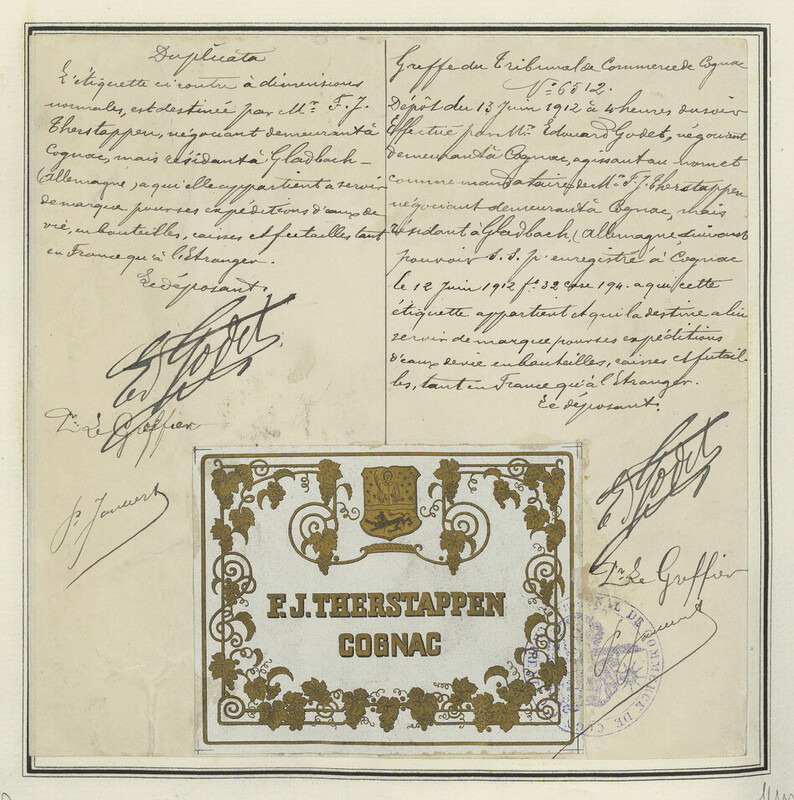 Duplicata
L'étiquette ci contre à dimensions
normales, est destinée par Mr. F. J.
Therstappen, négociant demeurant à
Cognac, mais résidant à Gladbach
(Allemagne), a qui elle appartient a servir
de marque pour ses expéditions d'eaux de
vie, en bouteilles, caisses et futailles tant
en France qu'à l'Etranger.
Le déposant.
Ed Godet
Pr. Le Greffier
Greffe du Tribunal de Commerce de Cognac
No. 6512.
Dépôt du 13 Juin 1912 à 4 heures du soir
Effectué par Mr. Edouard Godet, négociant
demeurant à Cognac, agissant au nom et
comme mandataire de Mr. F. J. Therstappen
négociant demeurant à Cognac, mais
résidant à Gladbach, (Allemagne, suivant
pouvoir S. S. p. enregistré à Cognac
le 12 Juin 1912 fo. 32 case 194. a qui cette
étiquette appartient et qui la destine a lui
servir de marque pour ses expéditions
d'eaux de vie en bouteilles, caisses et futail-
les, tant en France qu'à l'Etranger.
Le déposant.
Ed Godet
Pr. Le Greffier
F. J. THERSTAPPEN
COGNAC
TRIBUNAL DE COMMERCE DE COGNAC